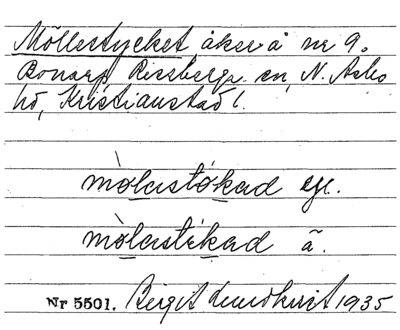 Möllestycket, åker å nr 9.
Bonarp Rissberga sn, N. Åsbo
hd, Kristianstad l.
mòlestókad
mòlestikad ã.
Nr 5501. Birgit 1935